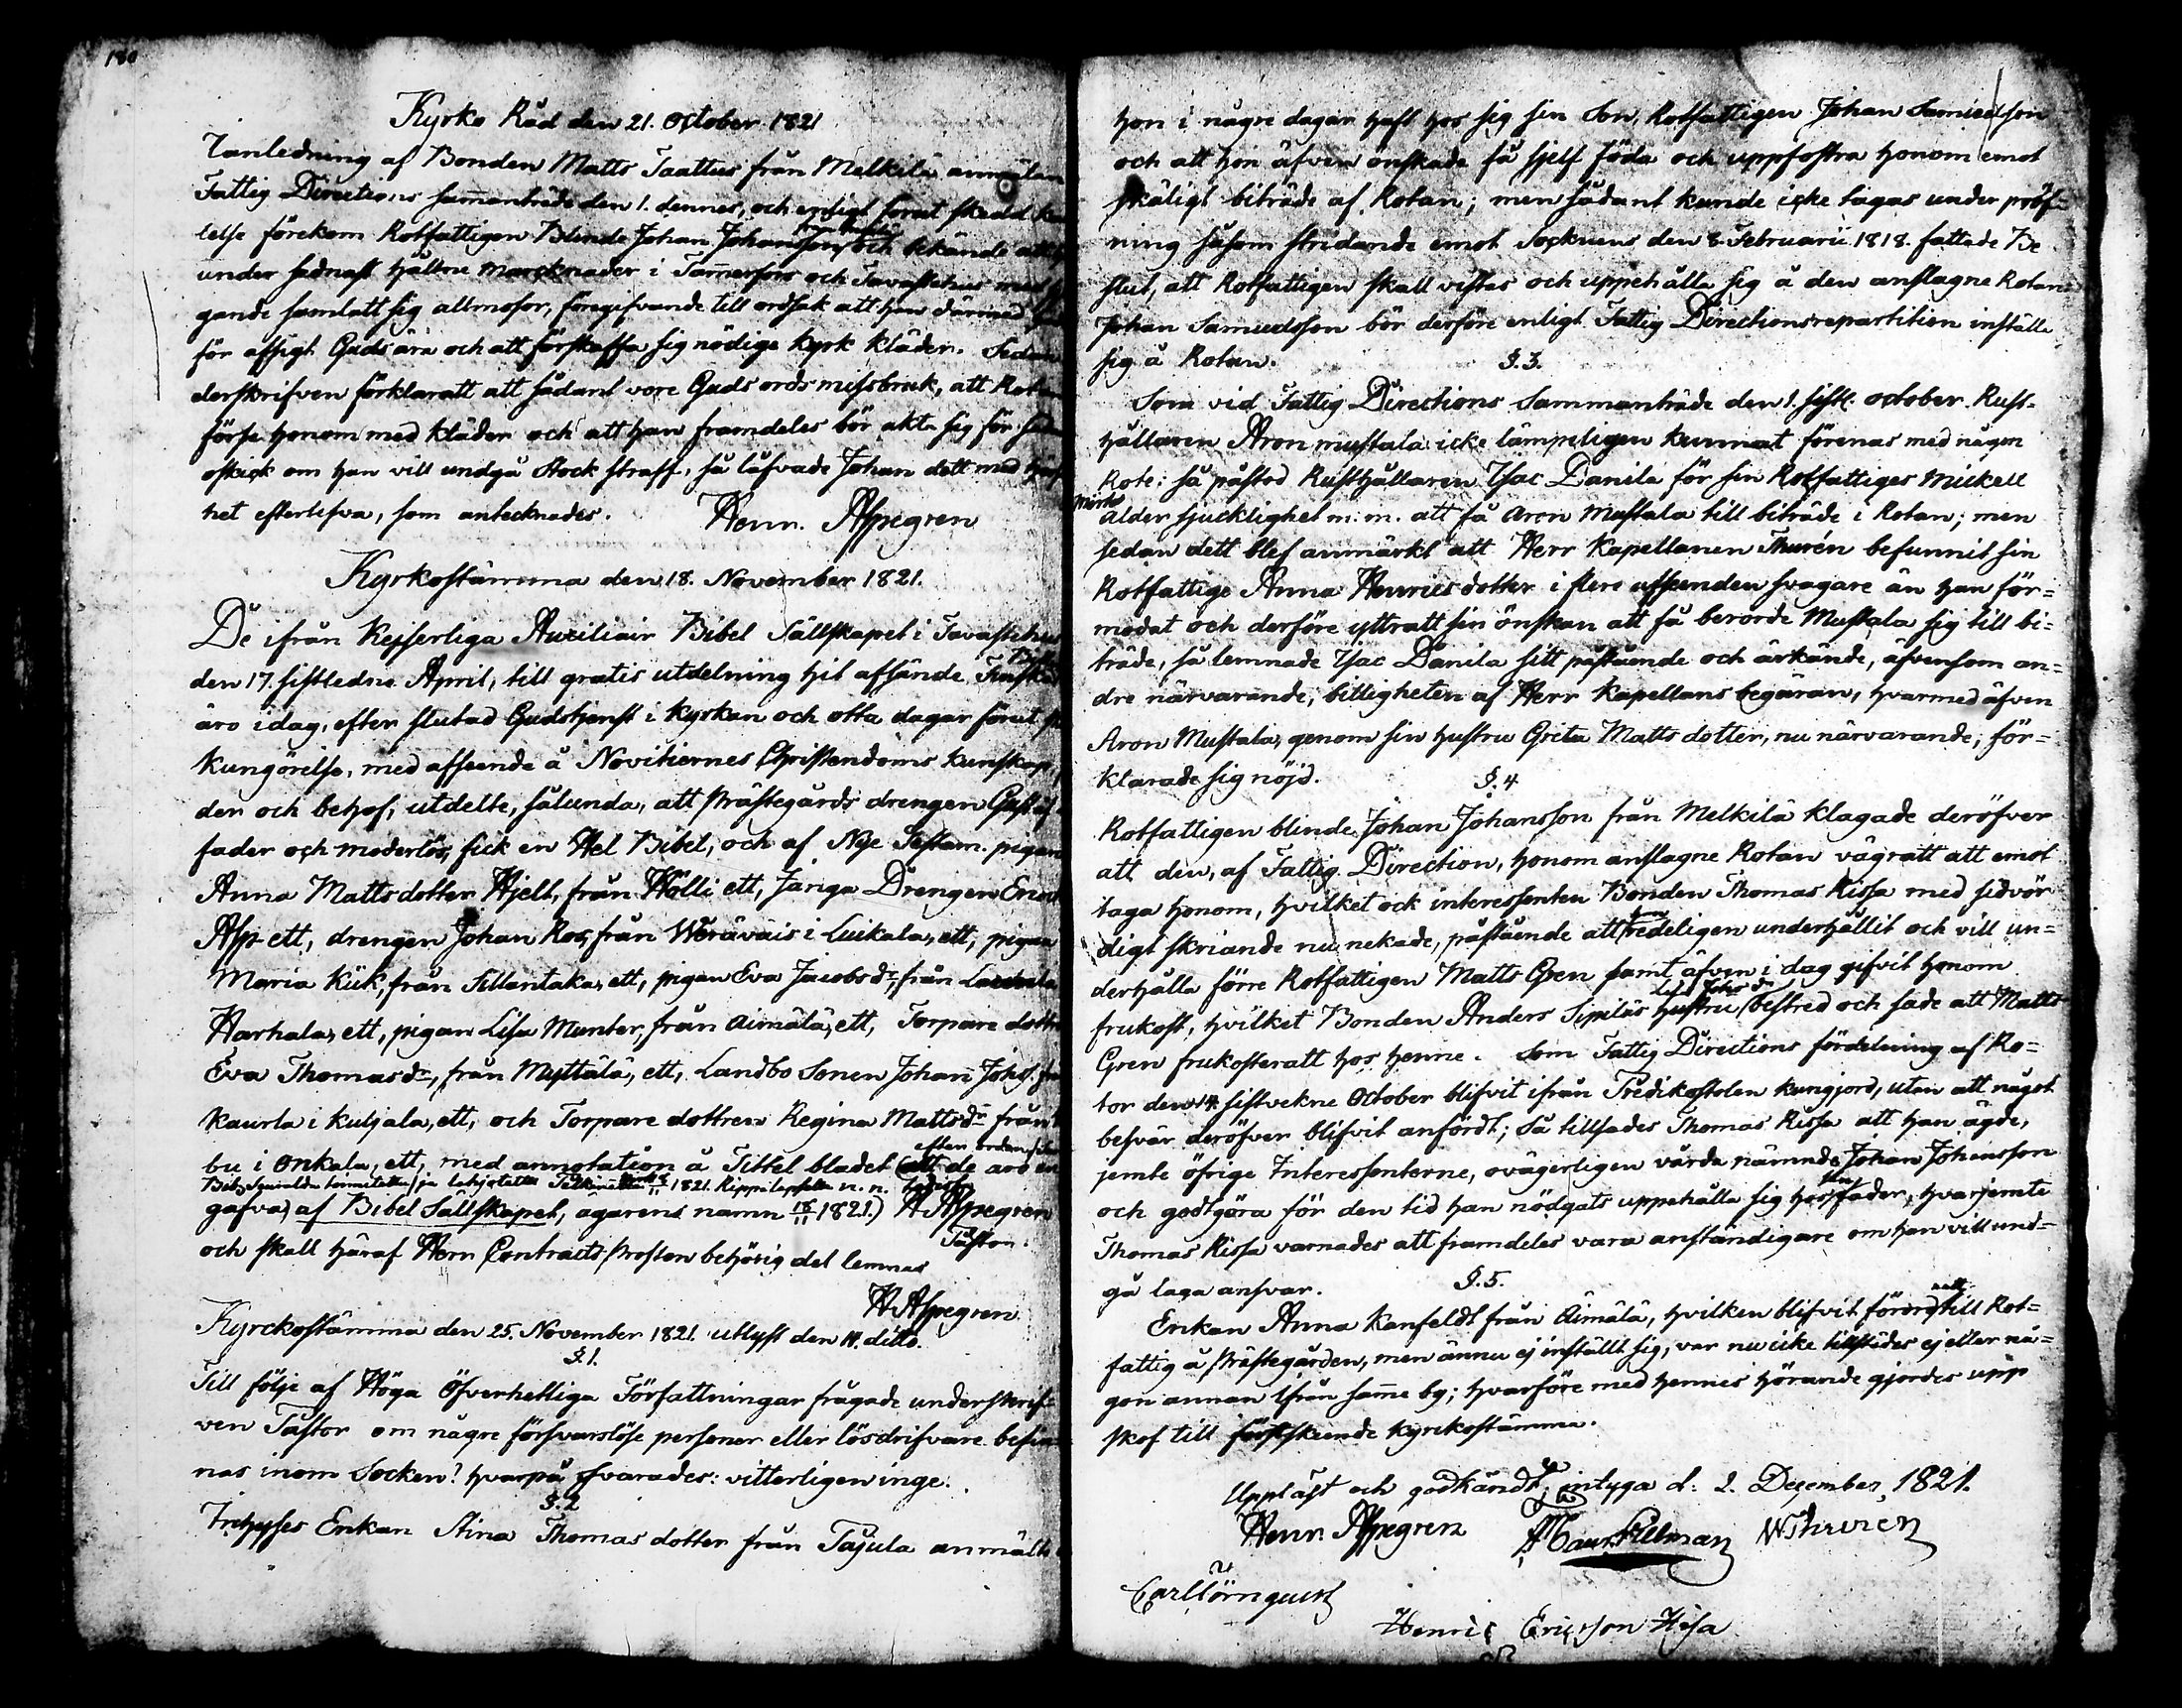 180
Kyrko Råd den 21. October 1821
I anledning af Bonden Matts Taattus från Melkilä anmälan
Fattig Directions sam̃anträde den 1. dennes, och enligt förut skedd
telse förekom Rotfattigen Blinde Johan Johansson och bekände att
under sednast hållne marcknader i Tam̃erfors och Tavastehus
gande samlatt sig allmosor, föregifvande till orsak att han därmed
för affigt Guds ära och att förskaffa sig nödiga kyrk kläder. Sedan
derskrifven förklaratt att sådant vore Guds ords missbruk, att Rotan
förse honom med kläder och att han framdeles bör akta sig för
oskick om han vill undgå Stock straff, så låfvade Johan dett med
het efterlefva, som antecknades. Henr. Aspegren
Kyrkostämma den 18. November 1821.
De ifrån Kejserliga Auxiliair Bibel Sällskapet i Tavastehus
den 17. sistledne April, till gratis utdelning hit afsände
äro idag, efter slutad Gudstjenst i kyrkan och otta dagar förut
Kungörelse, med afseende å Novitiernes Christendoms kunskap,
der och behof, utdelte, sålunda, att Prästegårds drengen
fader och moderlös, fick en Hel Bibel, och af Nye Testam. pigan
Anna Matts dotter Hjelt, från Hölli ett, Järiga Drengen
Asp ett, drengen Johan Ros, från Weräväis i Luikala, ett, pigan
Maria Kiik, från Sillantaka, ett, pigan Eva Jacobs dr, från
Harhala, ett, pigan Lisa Munter, från Äimälä, ett, Torpare
Eva Thomas dr, från Myttälä, ett, Landbo Sonen Johan̄ Johss.
Kaurla i Kuljala, ett, och Torpare dottren Regina Matts dr från
bu i Onkala, ett, med annotation å Tittel bladet att de äro
efter orden
1821.
gafva af Bibel Sällskapet, ägarens namn 18/11 1821.) H Aspegren
Pastor.
och skall häraf Herr Contracts Prosten behörig del lemnas
H Aspegren
Kyrckostämma den 25. November 1821 utlyst den 11. ditto.
§.1.
Till följe af Höga Öfverhetliga Författningar frågade underskrif=
ven Pastor om någre försvarslöse personer eller lösdrifvare befin
nas inom Socken? hvarpå svarades: vitterligen inge.
§.2
Inhyses Enkan Stina Thomas dotter från Pajula anmälte
hon i någre dagar haft hos sig sin Son, Rotfattigen Johan Samuelsson
och att hon äfven önskade få sjelf föda och uppfostra honom emot
skäligt biträde af Rotan; men sådant kunde icke tagas under pröf=
ning såsom stridande emot Socknens den 8. Februarii 1818. fattade Be
slut, att Rotfattigen skall vistas och uppehålla sig å den anslagne Rotan
Johan Samuelsson bör derföre enligt Fattig Directionsrepartition inställa
sig å Rotan. §.3.
Som vid Fattig Directions Sammanträde den 1. sistl. october Rust-
hållaren Aron Mustala icke lämpeligen kunnat förenas med någon
Rote: så påstod Rusthållaren Isac Danila för sin Rotfattiges Mickell
ålder sjucklighet m.m. att få Aron Mustala till biträde i Rotan; men
sedan dett blef anmärkt att Herr Kapellanen Thurén befunnit sin
Rotfattige Anna Henrics dotter i flere afseenden svagare än han för=
modat och derföre yttratt sin önskan att få berörde Mustala sig till bi=
träde, så lemnade Isac Danila sitt påstående och ärkände, äfvensom an=
dre närvarande, billigheten af Herr Kapellans begäran, hvarmed äfven
Aron Mustala, genom sin hustru Greta Matts dotter, nu närvarande, för=
klarade sig nöjd. §.4
Rotfattigen blinde Johan Johansson från Melkilä klagade deröfver
att den, af Fattig Direction, honom anslagne Rotan vägratt att emot
taga honom, hvilket ock interessenten Bonden Thomas Rissa med sidvör
digt skriande nu nekade, påstående att han redeligen underhållit och vill un=
derhålla förre Rotfattigen Matts Gren samt äfven i dag gifvit honom
frukost, hvilket Bonden Anders Sipiläs hustru bestred och sade att Matts
Gren frukosteratt hos henne. Som Fattig Directions fördelning af Ro=
tor den 14 sistvekne October blifvit ifrån Predikostolen kungjord, utan att något
besvär deröfver blifvit anfördt; Så tillsades Thomas Rissa att han ägde,
jemte öfrige Interessenterne, ovägerligen vårda nämnde Johan Johansson
och godtgöra för den tid han nödgats uppehålla sig hos sin fader, hvarjemte
Thomas Rissa varnades att framdeles vara anständigare om han vill und=
gå laga ansvar. §.5.
Enkan Anna Ranfeldt från Äimälä, hvilken blifvit förord till Rot=
fattig å Prästegården, men ännu ej inställt sig, var nu icke tillstädes ej eller nå=
gon annan ifrån sam̃e by; hvarföre med hennes hörande gjordes upp
skof till förstskeende kyrckostämma.
Uppläst och godkändt, intyga d: 2. December, 1821.
Henr. Aspegren W Thuren
Carl Törnqvist
Henric Ericsson Hisa